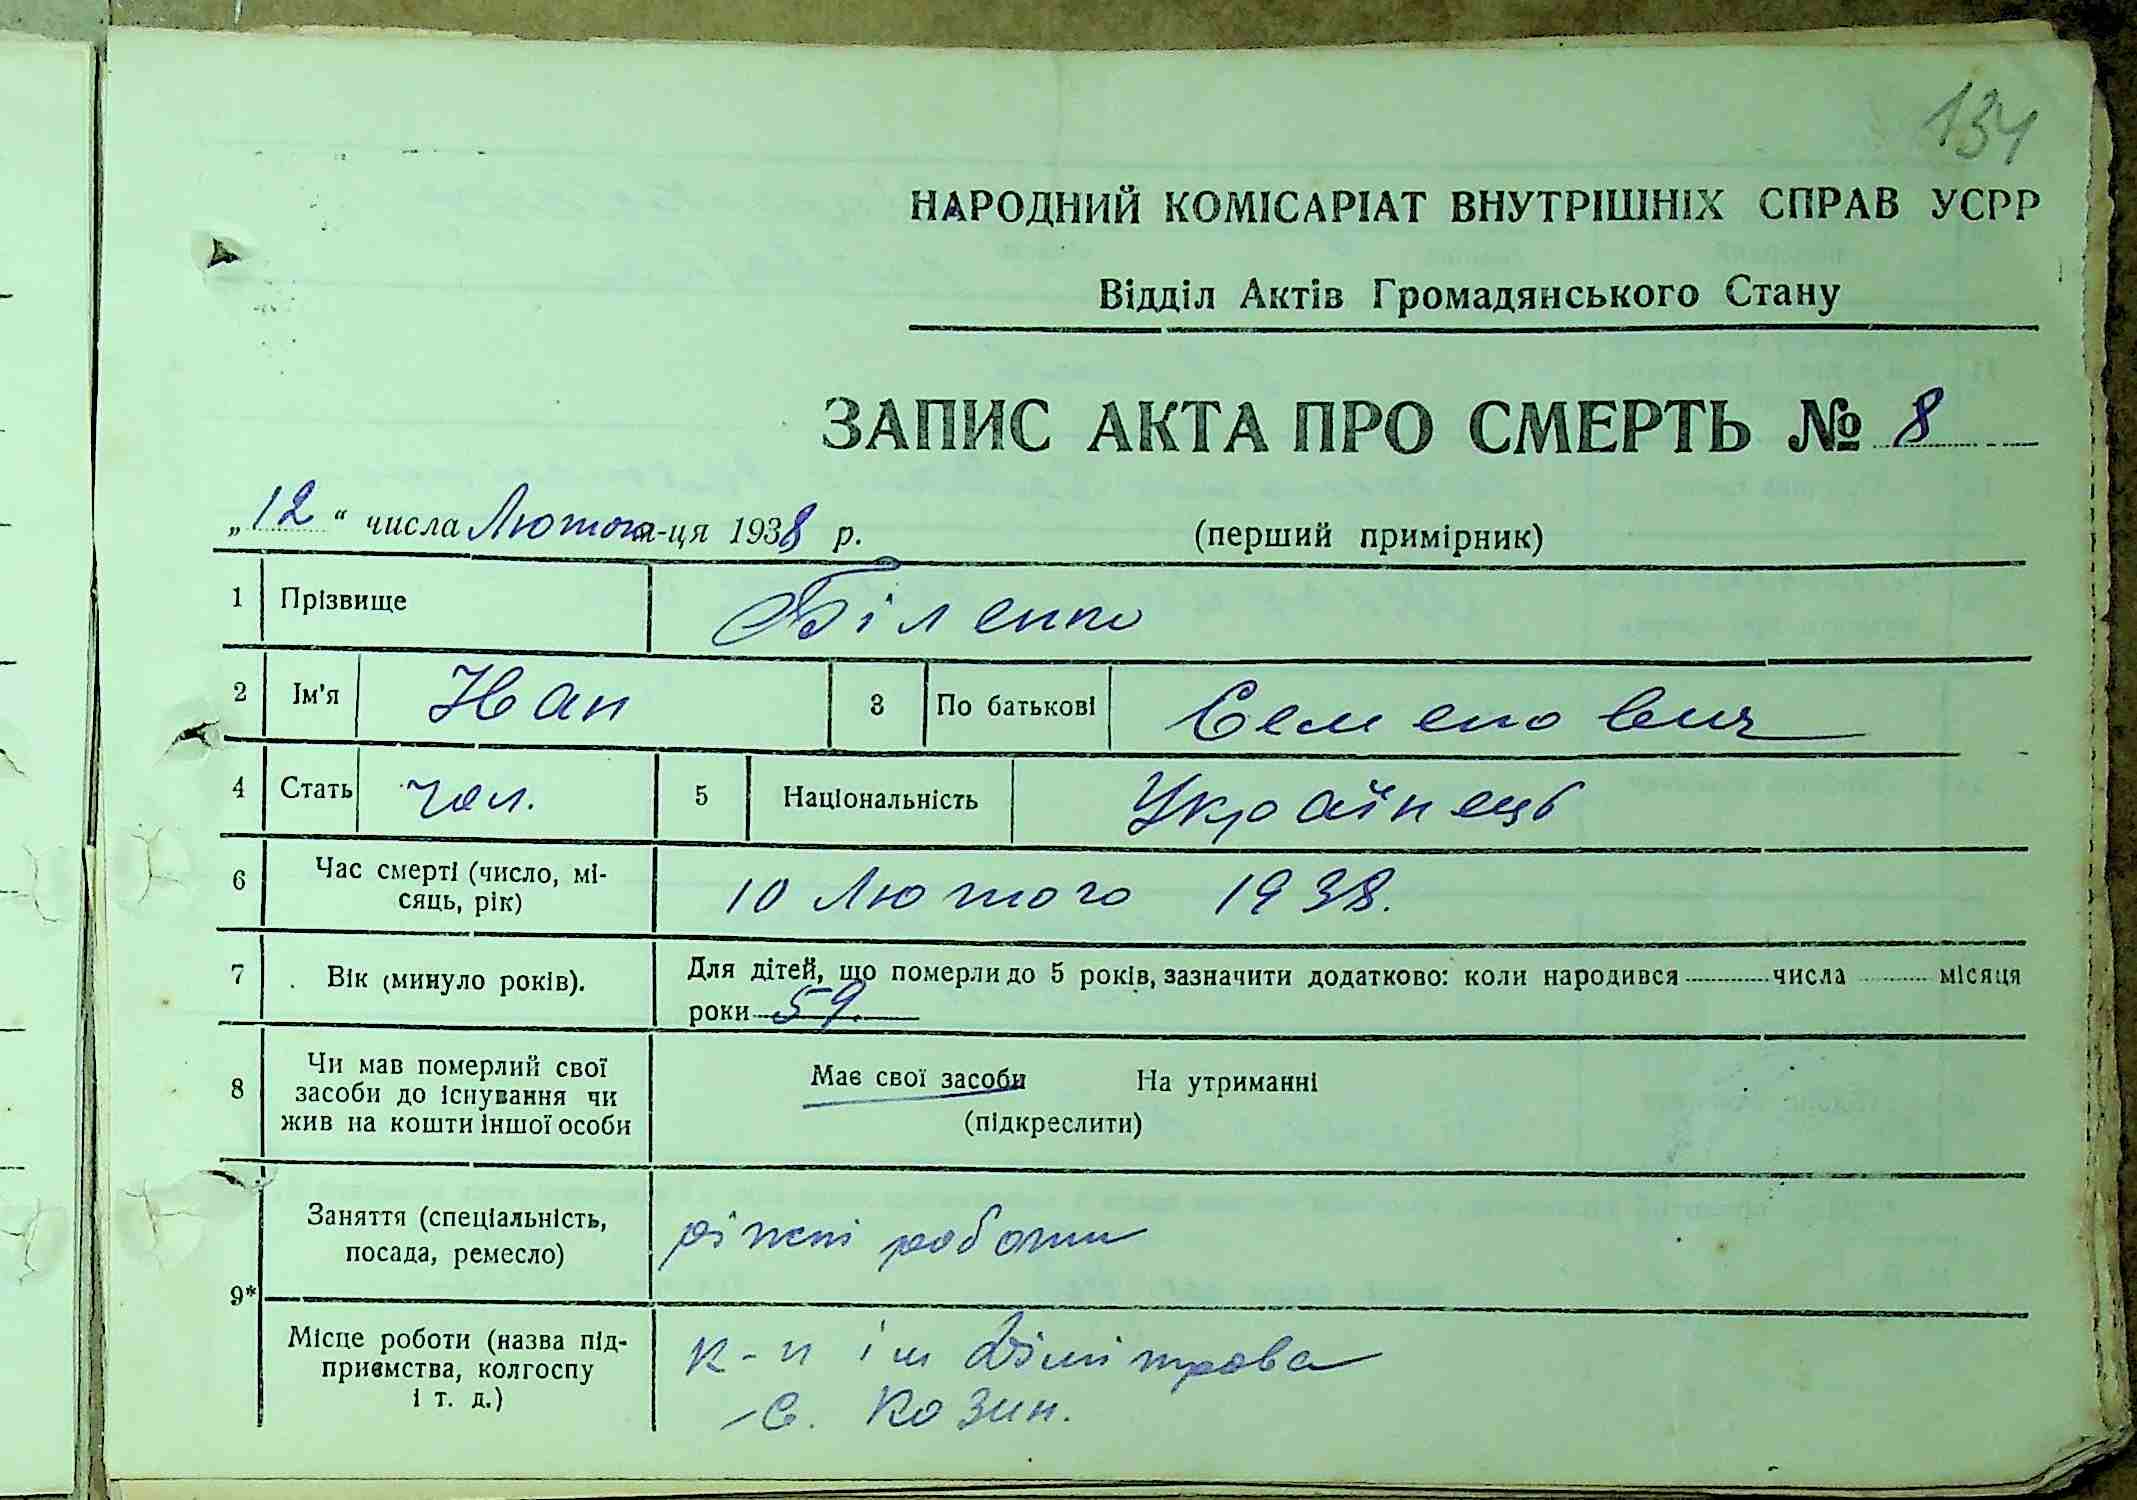 134
НАРОДНИЙ КОМІСАРІАТ ВНУТРІШНІХ СПРАВ УСРР
Відділ Актів Громадянського Стану
ЗАПИС АКТА ПРО СМЕРТЬ № 8
„12“ числа Лютого м-ця 1938 р. (перший примірник)
1 Прізвище Біленко
2 Ім'я Іван 3 По батькові Семенович
4 Стать чол. 5 Національність Українець
6 Час смерті (число, мі-
сяць, рік) 10 Лютого 1938.
7 Вік (минуло років). Для дітей, що померли до 5 років, зазначити додатково: коли народився числа місяця
роки 59.
8 Чи мав померлий свої
засоби до існування чи
жив на кошти іншої особи
Має свої засоби На утриманні
(підкреслити)
9*
Заняття (спеціальність,
посада, ремесло) ріжні роботи
Місце роботи (назва під-
приємства, колгоспу
і т. д.)
к-п ім Дімітрова
с. Козин.